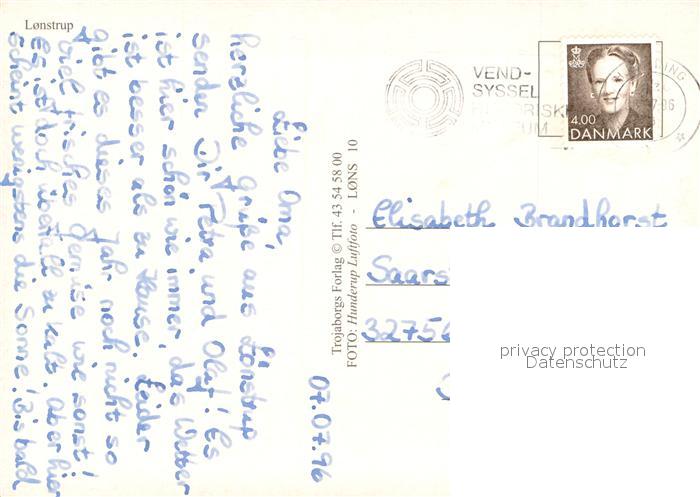 Lønstrup
07.07.96
Liebe Oma,
herzliche Grüße aus Lönstrup
senden Dir Petra und Olaf! Es
ist hier schön wie immer, das Wetter
ist besser als zu Hause. Leider
gibt es dieses Jahr noch nicht so
viel frisches Gemüse wie sonst!
Es ist doch überall zu kalt. Aber hier
scheint wenigstens die Sonne! Bis bald
Trojaborgs Forlag © Tlf. 43 54 58 00
FOTO: Hunderup Luftfoto - LØNS 10
VEND-
SYSSEL
4.00
DANMARK
Elisabeth Brandhorst
Saars
32756
privacy protection
Datenschutz